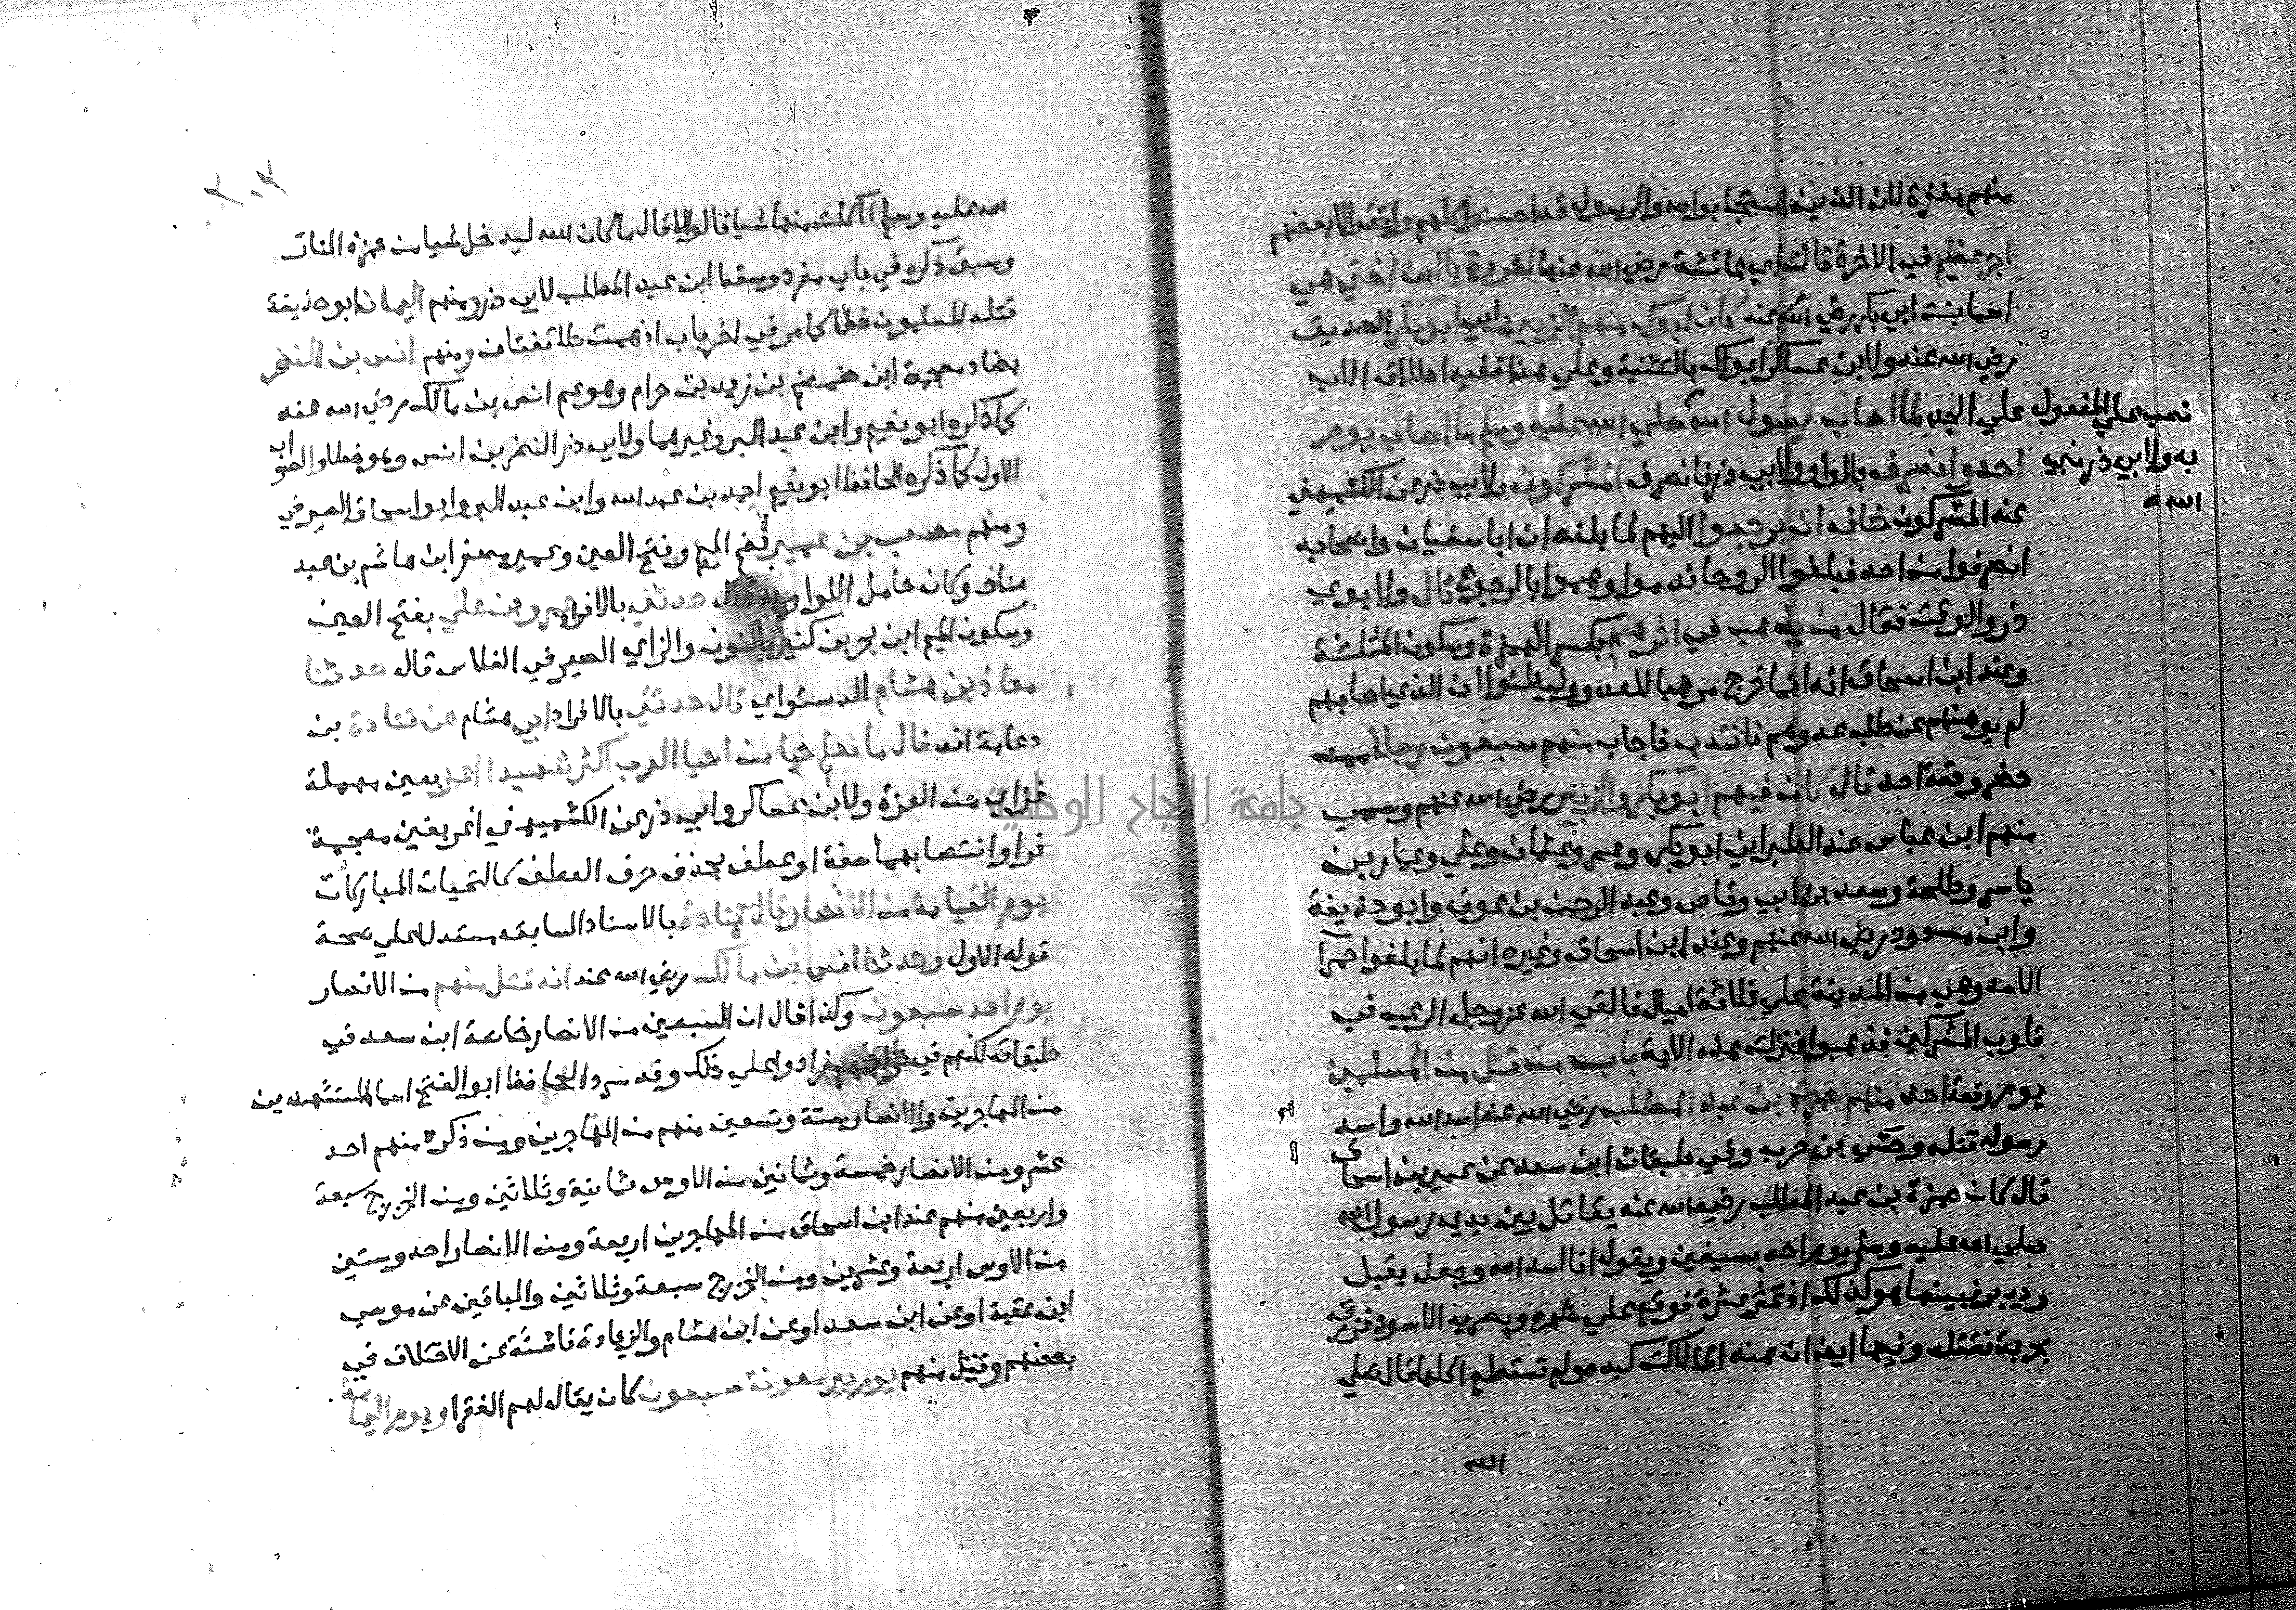 منهم مغفرة لان الذين استجابوا لله والرسول قد احسنوا كلهم واتقوا لا بعضهم
اجر عظيم في الاخرة قالت اي عائشة رضي الله عنها لعروة يا ابن اختي هي
اسما بنت ابي بكر رضي الله عنه كان ابوك منهم الزبير وابو بكر الصديق
رضي الله عنه ولابن عساكر ابواك بالتثنية وعلي هذا ففيه اطلاق الاب
علي الجد لما اصاب رسول الله صلي الله عليه وسلم ما اصاب يوم
نصب علي المفعول
به ولابي ذر نبي
الله
احد وانصرف بالواو ولابي ذر فانصرف المشركون ولابي ذر عن الكشميهني
عنه المشركون خاف ان يرجعوا اليهم لما بلغه ان ابا سفيان واصحابه
انصرفوا من احد فبلغوا الروحا ندموا وهموا بالرجوع قال ولابوي
ذر والوقت فقال من يذهب في اثرهم بكسر الهمزة وسكون المثلثة
وعند ابن اسحاق انه انما خرج مرهبا للعدو وليظنوا ان الذي اصابهم
لم يوهنهم عن طلب عدوهم فانتدب فاجاب منهم سبعون رجلا ممن
حضر وقعة احد قال كان فيهم ابو بكر والزبير رضي الله عنهم وسمي
منهم ابن عباس عند الطبراني ابو بكر وعمر وعثمان وعلي وعمار بن
ياسر وطلحة وسعد بن ابي وقاص وعبد الرحمن بن عوف وابو حذيفة
وابن مسعود رضي الله عنهم وعند ابن اسحاق وغيره انهم لما بلغوا حمرا
الاسد وهي من المدينة علي ثلاثة اميال فالقي الله عز وجل الرعب في
قلوب المشركين فذهبوا فنزلت هذه الاية باب من قتل من المسلمين
يوم وقعة احد منهم حمزة بن عبد المطلب رضي الله عنه اسد الله واسد
رسوله قتله وحشي بن حرب وفي طبقات ابن سعد عن عمير بن اسحاق
قال كان حمزة بن عبد المطلب رضي الله عنه يقاتل بين يدي رسول الله
صلي الله عليه وسلم يوم احد بسيفين ويقول انا اسد الله وجعل يقبل
ويدبر فبينما هو كذلك اذ عثر عثرة فوقع علي ظهره وبصر به الاسود فزرقه
بحربة فقتله وفيها ايضا ان هند لما لاكت كبده ولم تستطع اكلها قال صلي
الله
٣٠٣
الله عليه وسلم اأكلت منها شيا قالوا لا قال ما كان الله ليدخل شيا من حمزة النار
وسبق ذكره في باب مفرد وسقط ابن عبد المطلب لابي ذر ومنهم اليمان ابو حذيفة
قتله المسلمون خطا كما مر في اخر باب اذ همت طائفتان ومنهم انس بن النضر
بضاد معجمة ابن ضمضم بن زيد بن حرام وهو عم انس بن مالك رضي الله عنه
كما ذكره ابو نعيم وابن عبد البر وغيرهما ولابي ذر النضر بن انس وهو خطا والصواب
الاول كما ذكره الحافظ ابو نعيم احمد بن عبد الله وابن عبد البر وابو اسحاق الصيرفي
ومنهم مصعب بن عمير بضم الميم وفتح العين وعمير مصغر ابن هاشم بن عبد
مناف وكان حامل اللوا وبه قال حدثني بالافراد عمرو بن علي بفتح العين
وسكون الميم ابن بحر بن كنيز بالنون والزاي الصيرفي الفلاس قال حدثنا
معاذ بن هشام الدستواي قال حدثني بالافراد ابي هشام عن قتادة بن
دعامة انه قال ما نعلم حيا من احيا العرب اكثر شهيدا اعز بعين مهملة
فزاي من العزة ولابن عساكر وابي ذر عن الكشميهني اغر بغين معجمة
فرا وانتصابهما صفة او عطف بحذف حرف العطف كالتحيات المباركات
يوم القيامة من الانصار قال قتادة بالاسناد السابق مستدلا علي صحة
قوله الاول وحدثنا انس بن مالك رضي الله عنه انه قتل منهم من الانصار
يوم احد سبعون وكذا قال ان السبعين من الانصار خاصة ابن سعد في
طبقاته لكنهم في زادوا علي ذلك وقد سرد الحافظ ابو الفتح اسما المستشهدين
من المهاجرين والانصار ستة وتسعين منهم من المهاجرين ومن ذكره منهم احد
عشر ومن الانصار خمسة وثمانين من الاوس ثمانية وثلاثين ومن الخزرج سبعة
واربعين منهم عند ابن اسحاق من المهاجرين اربعة ومن الانصار احد وستين
من الاوس اربعة وعشرين ومن الخزرج سبعة وثلاثين والباقين عن موسي
ابن عقبة او عن ابن سعد او عن ابن هشام والزيادة ناشئة عن الاختلاف في
بعضهم وقتل منهم يوم بير معونة سبعون كان يقال لهم القرا ويوم اليمامة
جامعة النجاح الوطنية